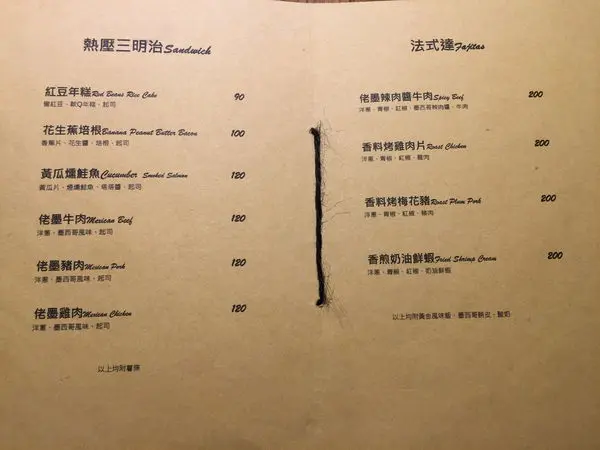 熱壓三明治Sandwich
紅豆年糕Red Beans Rice Cake 90
蜜紅豆、軟Q年糕、起司
花生蕉培根Banana Peanut Butter Bacon 100
香蕉片、花生醬、培根、起司
黃瓜燻鮭魚Cucumber Smoked Salmon 120
黃瓜片、煙燻鮭魚、塔塔醬、起司
佬墨牛肉Mexican Beef 120
洋蔥、墨西哥風味、起司
佬墨豬肉Mexican Pork 120
洋蔥、墨西哥風味、起司
佬墨雞肉Mexican Chicken 120
洋蔥、墨西哥風味、起司
以上均附薯條
法式達Fajitas
佬墨辣肉醬牛肉Spicy Beef 200
洋蔥、青椒、紅椒、墨西哥辣肉醬、牛肉
香料烤雞肉片Roast Chicken 200
洋蔥、青椒、紅椒、雞肉
香料烤梅花豬Roast Plum Pork 200
洋蔥、青椒、紅椒、豬肉
香煎奶油鮮蝦Fried Shrimp Cream 200
洋蔥、青椒、紅椒、奶油鮮蝦
以上均附黃金風味飯、墨西哥餅皮、酸奶